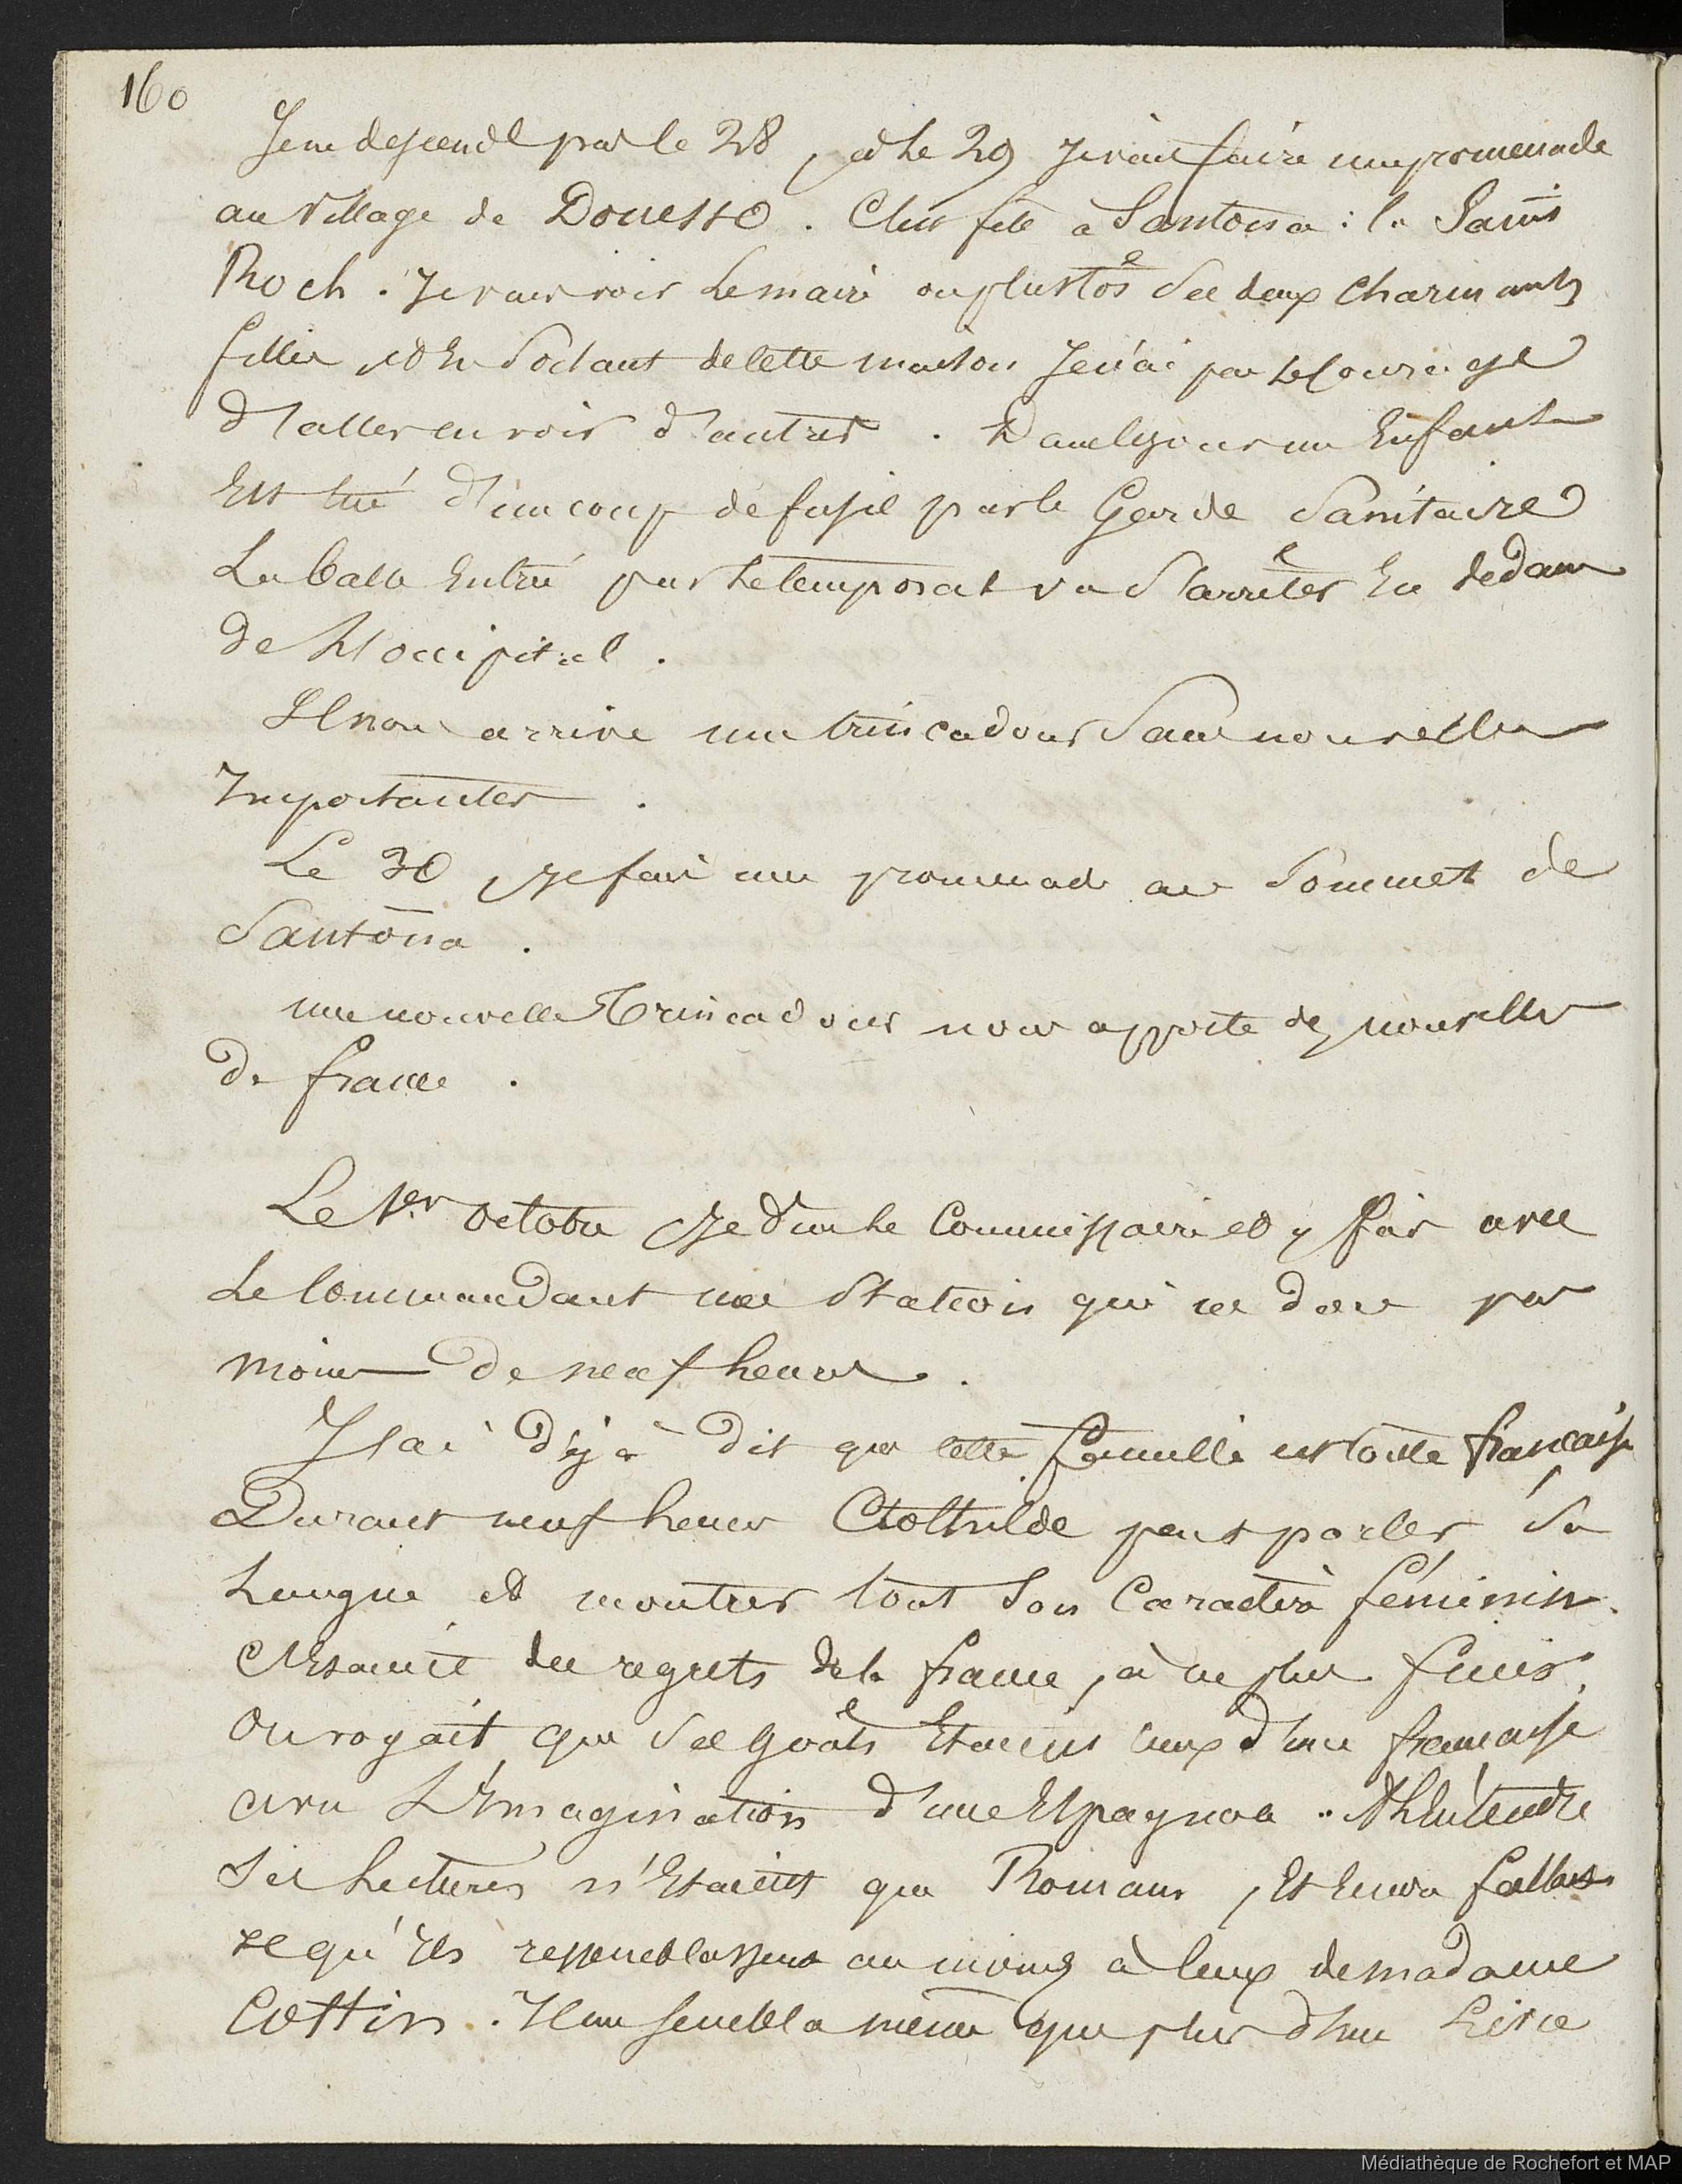 160
Je ne descends pas le 28, et le 29 je vais faire une promenade
au village de Douesso. C'est fête a Santona : la Saint
Roch. Je vais voir le maire ou plustôs ses deux charmants
filles, et en sortant de cette maison je n'ai pas le courage
d'aller en voir d'autres. Dans le jour un Enfant
Est tué d'un coup de fusil par le Garde Sanitaire
La balle Entrée par le temporal va s'arrêter En dedans
de l'occipital.
Il nous arrive une trincadour sans nouvelles
Importantes.
Le 30, je fais une promenade au sommet de
Santona.
une nouvelle Trincadour nous apporte des nouvelles
de france.
Le 1er octobre je dine le Commissaire et y fais avec
le Commandant une station qui ne dure pas
moins de neuf heures.
J'ai déjà dit que cette famille est toute française
Durant neuf heures Clothilde peut parler sa
langue et montrer tout son Caractère féminin.
C'Etait des regrets de la france, à ne plus finir.
On voyait que ses goûts Etaient ceux d'une française
avec L'Imagination d'une Espagnola. A l'Entendre
Ses Lectures n'Etaient que Romans, Et Encore fallus
se qu'Ils ressemblassent au moins à ceux de madame
Cottin. Il me sembla même que plus d'une Livre